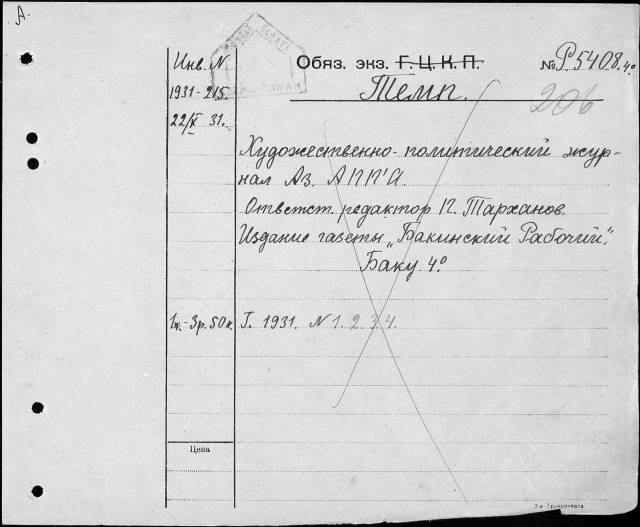 А.
Инв. N
1931-215.
22/X 31.
Обяз. экз. Г.Ц.К.П.
№ Р5408.4°
Темп.
206
Художественно-политический жур-
нал Аз. АПП'А.
Ответст. редактор П. Тарханов.
Издание газеты „Бакинский Рабочий".
Баку. 4°
3р. 50к.
Г. 1931. N 1. 2. 3. 4.
Цена